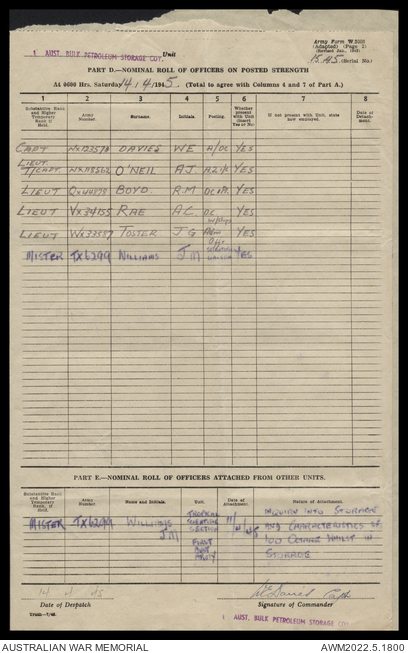 Army Form W.3008
(Adapted) (Page 2)
(Revised Jan., 1943)
15/45 (Serial No.)
1 AUST. BULK PETROLEUM STORAGE COY. Unit
PART D.—NOMINAL ROLL OF OFFICERS ON POSTED STRENGTH
At 0600 Hrs. Saturday 14/4/1945. (Total to agree with Columns 4 and 7 of Part A.)
1 2 3 4 5 6 7 8
Substantive Rank and Higher Temporary Rank if Held. Army Number. Surname. Initials. Posting. Whether present with Unit (Insert Yes or No) If not present with Unit, state how employed. Date of Detachment.
CAPT NX123578 DAVIES WE A/OC YES
LIEUT. T/CAPT. NX118562 O'NEIL AJ YES
LIEUT QX44879 BOYD. R.M YES
LIEUT VX34155 RAE A.C. OC YES
LIEUT WX33587 TOSTER JG YES
MISTER TX6299 WILLIAMS J M YES
PART E.—NOMINAL ROLL OF OFFICERS ATTACHED FROM OTHER UNITS.
Substantive Rank and Higher Temporary Rank, if Held. Army Number. Name and Initials. Unit. Date of Attachment. Nature of Attachment.
MISTER TX6299 WILLIAMS J M TROPICAL SCIENTIFIC SECTION FIRST AUST ARMY 11/4/45 INQUIRY INTO STORAGE AND CHARACTERISTICS OF 100 OCTANE WHILST IN STORAGE
14 4 45
Date of Despatch
Signature of Commander
1 AUST. BULK PETROLEUM STORAGE COY.
AUSTRALIAN WAR MEMORIAL
AWM2022.5.1800